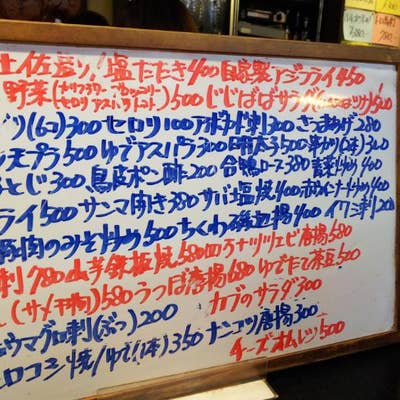 土佐造り!塩たたき400自家製アジフライ450
野菜(カリフラワー ブロッコリー セロリ アスパラ トマト)500じじばばサラダ
(6コ)300 セロリ100アボカド刺300さつまあげ280
ンモプラ500ゆでアスパラ300
とじ300 鳥皮ポン酢200 合鴨ロース380青菜炒め400
ライ500サンマ開き380サバ塩焼400赤ウインナー炒め400
豚肉のみそ炒め500ちくわ磯辺揚400イワシ刺200
刺780山芋鉄板焼580四万十川エビ唐揚580
(サメ干物)580うつぼ唐揚680ゆでたて茶豆500
カブのサラダ300
ウマグロ刺(ぶつ)200
ロコシ焼/ゆで(1本)350ナンコツ唐揚300
チーズオムレツ500